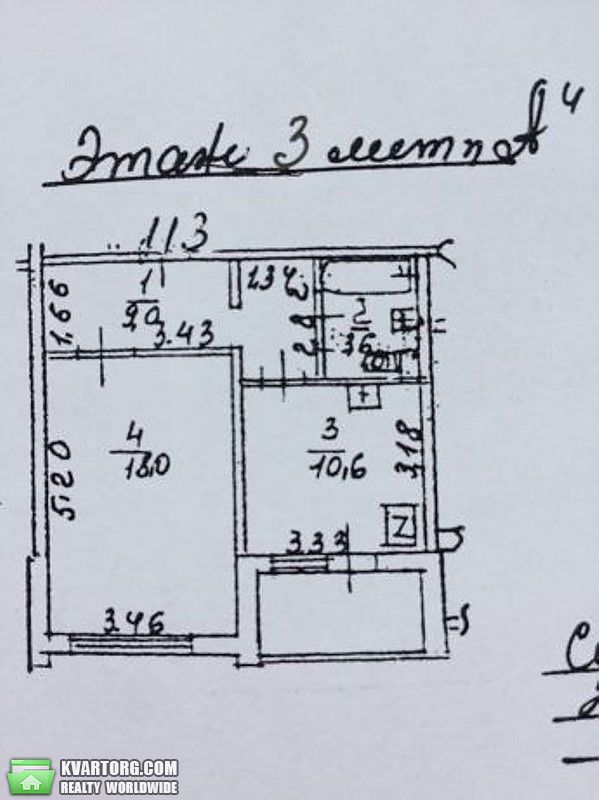 Этаж 3 литпоА"
113
1,66
1
9,0
3.43
1,34
2
3,6
5.20
4
18,0
3
10,6
3,18
3.33
3.46
KVARTORG.COM
REALTY WORLDWIDE